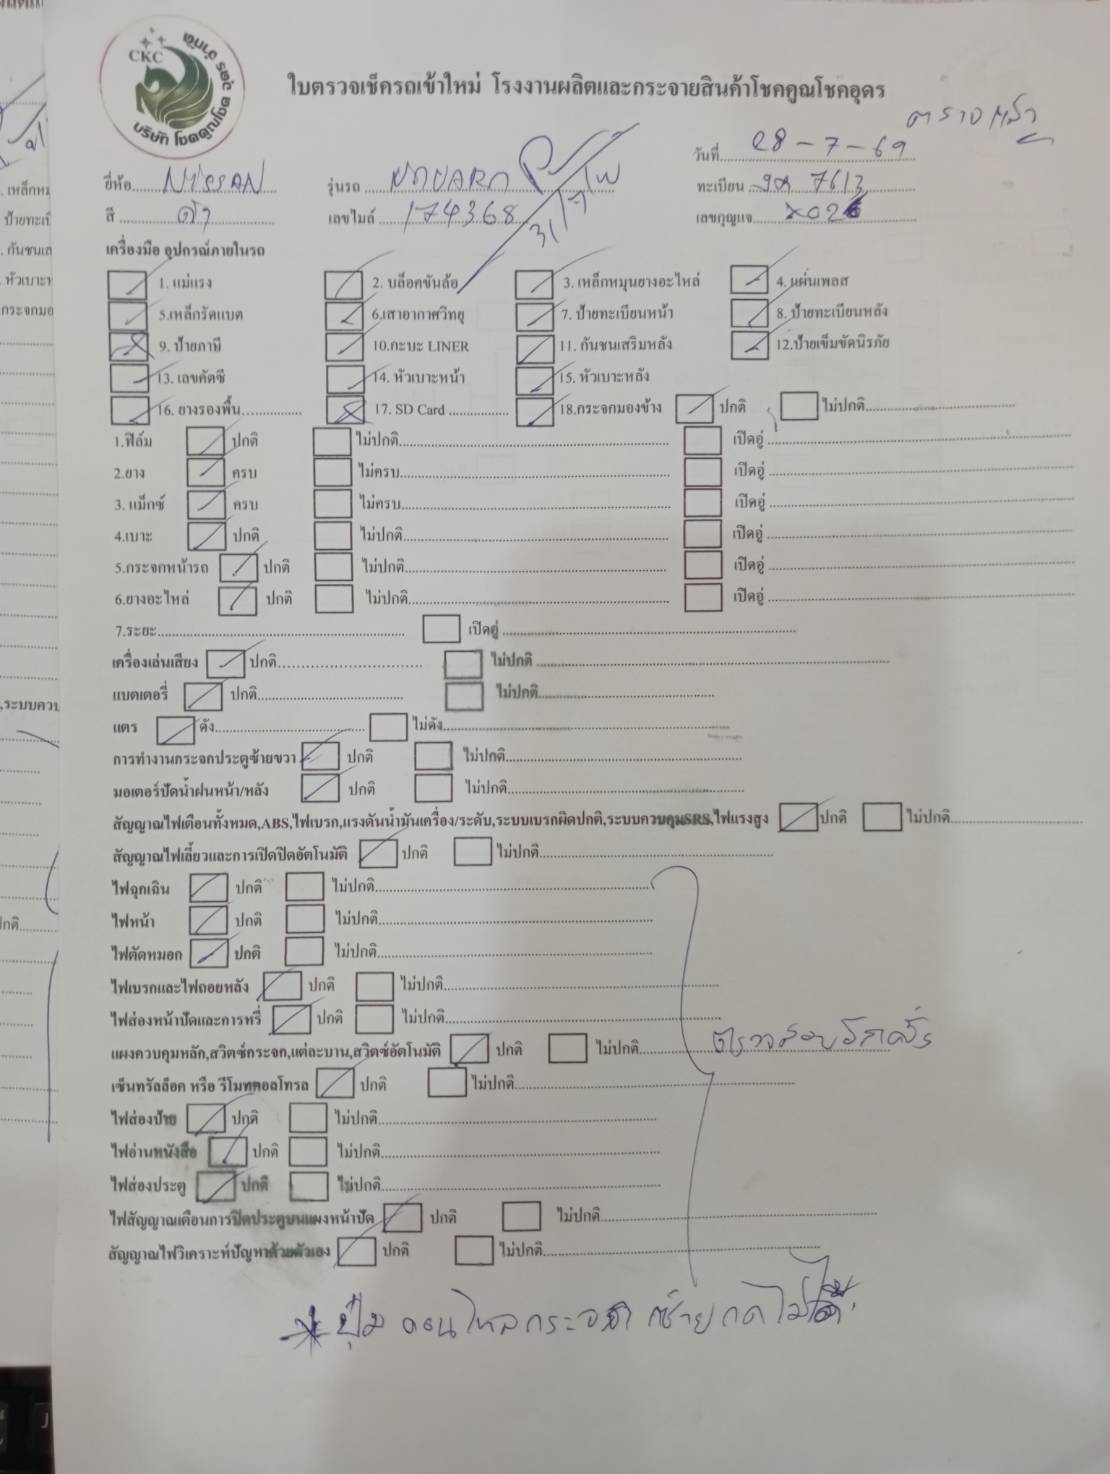 CKC
บริษัท โชคคูณโชค อุดร จำกัด
ใบตรวจเช็ครถเข้าใหม่ โรงงานผลิตและกระจายสินค้าโชคคูณโชคอุดร
ตรวจแล้ว
วันที่ 28-7-69
ยี่ห้อ NISSAN รุ่นรถ ทะเบียน 7613
สี ดำ เลขไมล์ 174368 เลขกุญแจ
31/7
เครื่องมือ อุปกรณ์ภายในรถ
1. แม่แรง 2. บล็อคขันล้อ 3. เหล็กหมุนยางอะไหล่ 4. แผ่นเพลส
5.เหล็กรัดแบต 6.เสาอากาศวิทยุ 7. ป้ายทะเบียนหน้า 8. ป้ายทะเบียนหลัง
9. ป้ายภาษี 10.กะบะ LINER 11. กันชนเสริมหลัง 12.ป้ายเข็มขัดนิรภัย
13. เลขคัตซี 14. หัวเบาะหน้า 15. หัวเบาะหลัง
16. ยางรองพื้น 17. SD Card 18.กระจกมองข้าง ปกติ ไม่ปกติ
1.ฟิล์ม ปกติ ไม่ปกติ เปิดอู่
2.ยาง ครบ ไม่ครบ เปิดอู่
3. แม็กซ์ ครบ ไม่ครบ เปิดอู่
4.เบาะ ปกติ ไม่ปกติ เปิดอู่
5.กระจกหน้ารถ ปกติ ไม่ปกติ เปิดอู่
6.ยางอะไหล่ ปกติ ไม่ปกติ เปิดอู่
7.ระยะ เปิดอู่
เครื่องเล่นเสียง ปกติ ไม่ปกติ
แบตเตอรี่ ปกติ ไม่ปกติ
แตร ดัง ไม่ดัง
การทำงานกระจกประตูซ้ายขวา ปกติ ไม่ปกติ
มอเตอร์ปัดน้ำฝนหน้า/หลัง ปกติ ไม่ปกติ
สัญญาณไฟเตือนทั้งหมด,ABS,ไฟเบรก,แรงดันน้ำมันเครื่อง/ระดับ,ระบบเบรกผิดปกติ,ระบบควบคุมSRS,ไฟแรงสูง ปกติ ไม่ปกติ
สัญญาณไฟเลี้ยวและการเปิดปิดอัตโนมัติ ปกติ ไม่ปกติ
ไฟฉุกเฉิน ปกติ ไม่ปกติ
ไฟหน้า ปกติ ไม่ปกติ
ไฟตัดหมอก ปกติ ไม่ปกติ
ไฟเบรกและไฟถอยหลัง ปกติ ไม่ปกติ
ไฟส่องหน้าปัดและการหรี่ ปกติ ไม่ปกติ
แผงควบคุมหลัก,สวิตซ์กระจก,แต่ละบาน,สวิตซ์อัตโนมัติ ปกติ ไม่ปกติ ตรวจสอบอีกครั้ง
เซ็นทรัลล็อค หรือ รีโมทคอลโทรล ปกติ ไม่ปกติ
ไฟส่องป้าย ปกติ ไม่ปกติ
ไฟอ่านหนังสือ ปกติ ไม่ปกติ
ไฟส่องประตู ปกติ ไม่ปกติ
ไฟสัญญาณเตือนการปิดประตูบนแผงหน้าปัด ปกติ ไม่ปกติ
สัญญาณไฟวิเคราะห์ปัญหาด้วยตัวเอง ปกติ ไม่ปกติ
* ปุ่ม คอนโทลกระจก ซ้าย กดไม่ได้